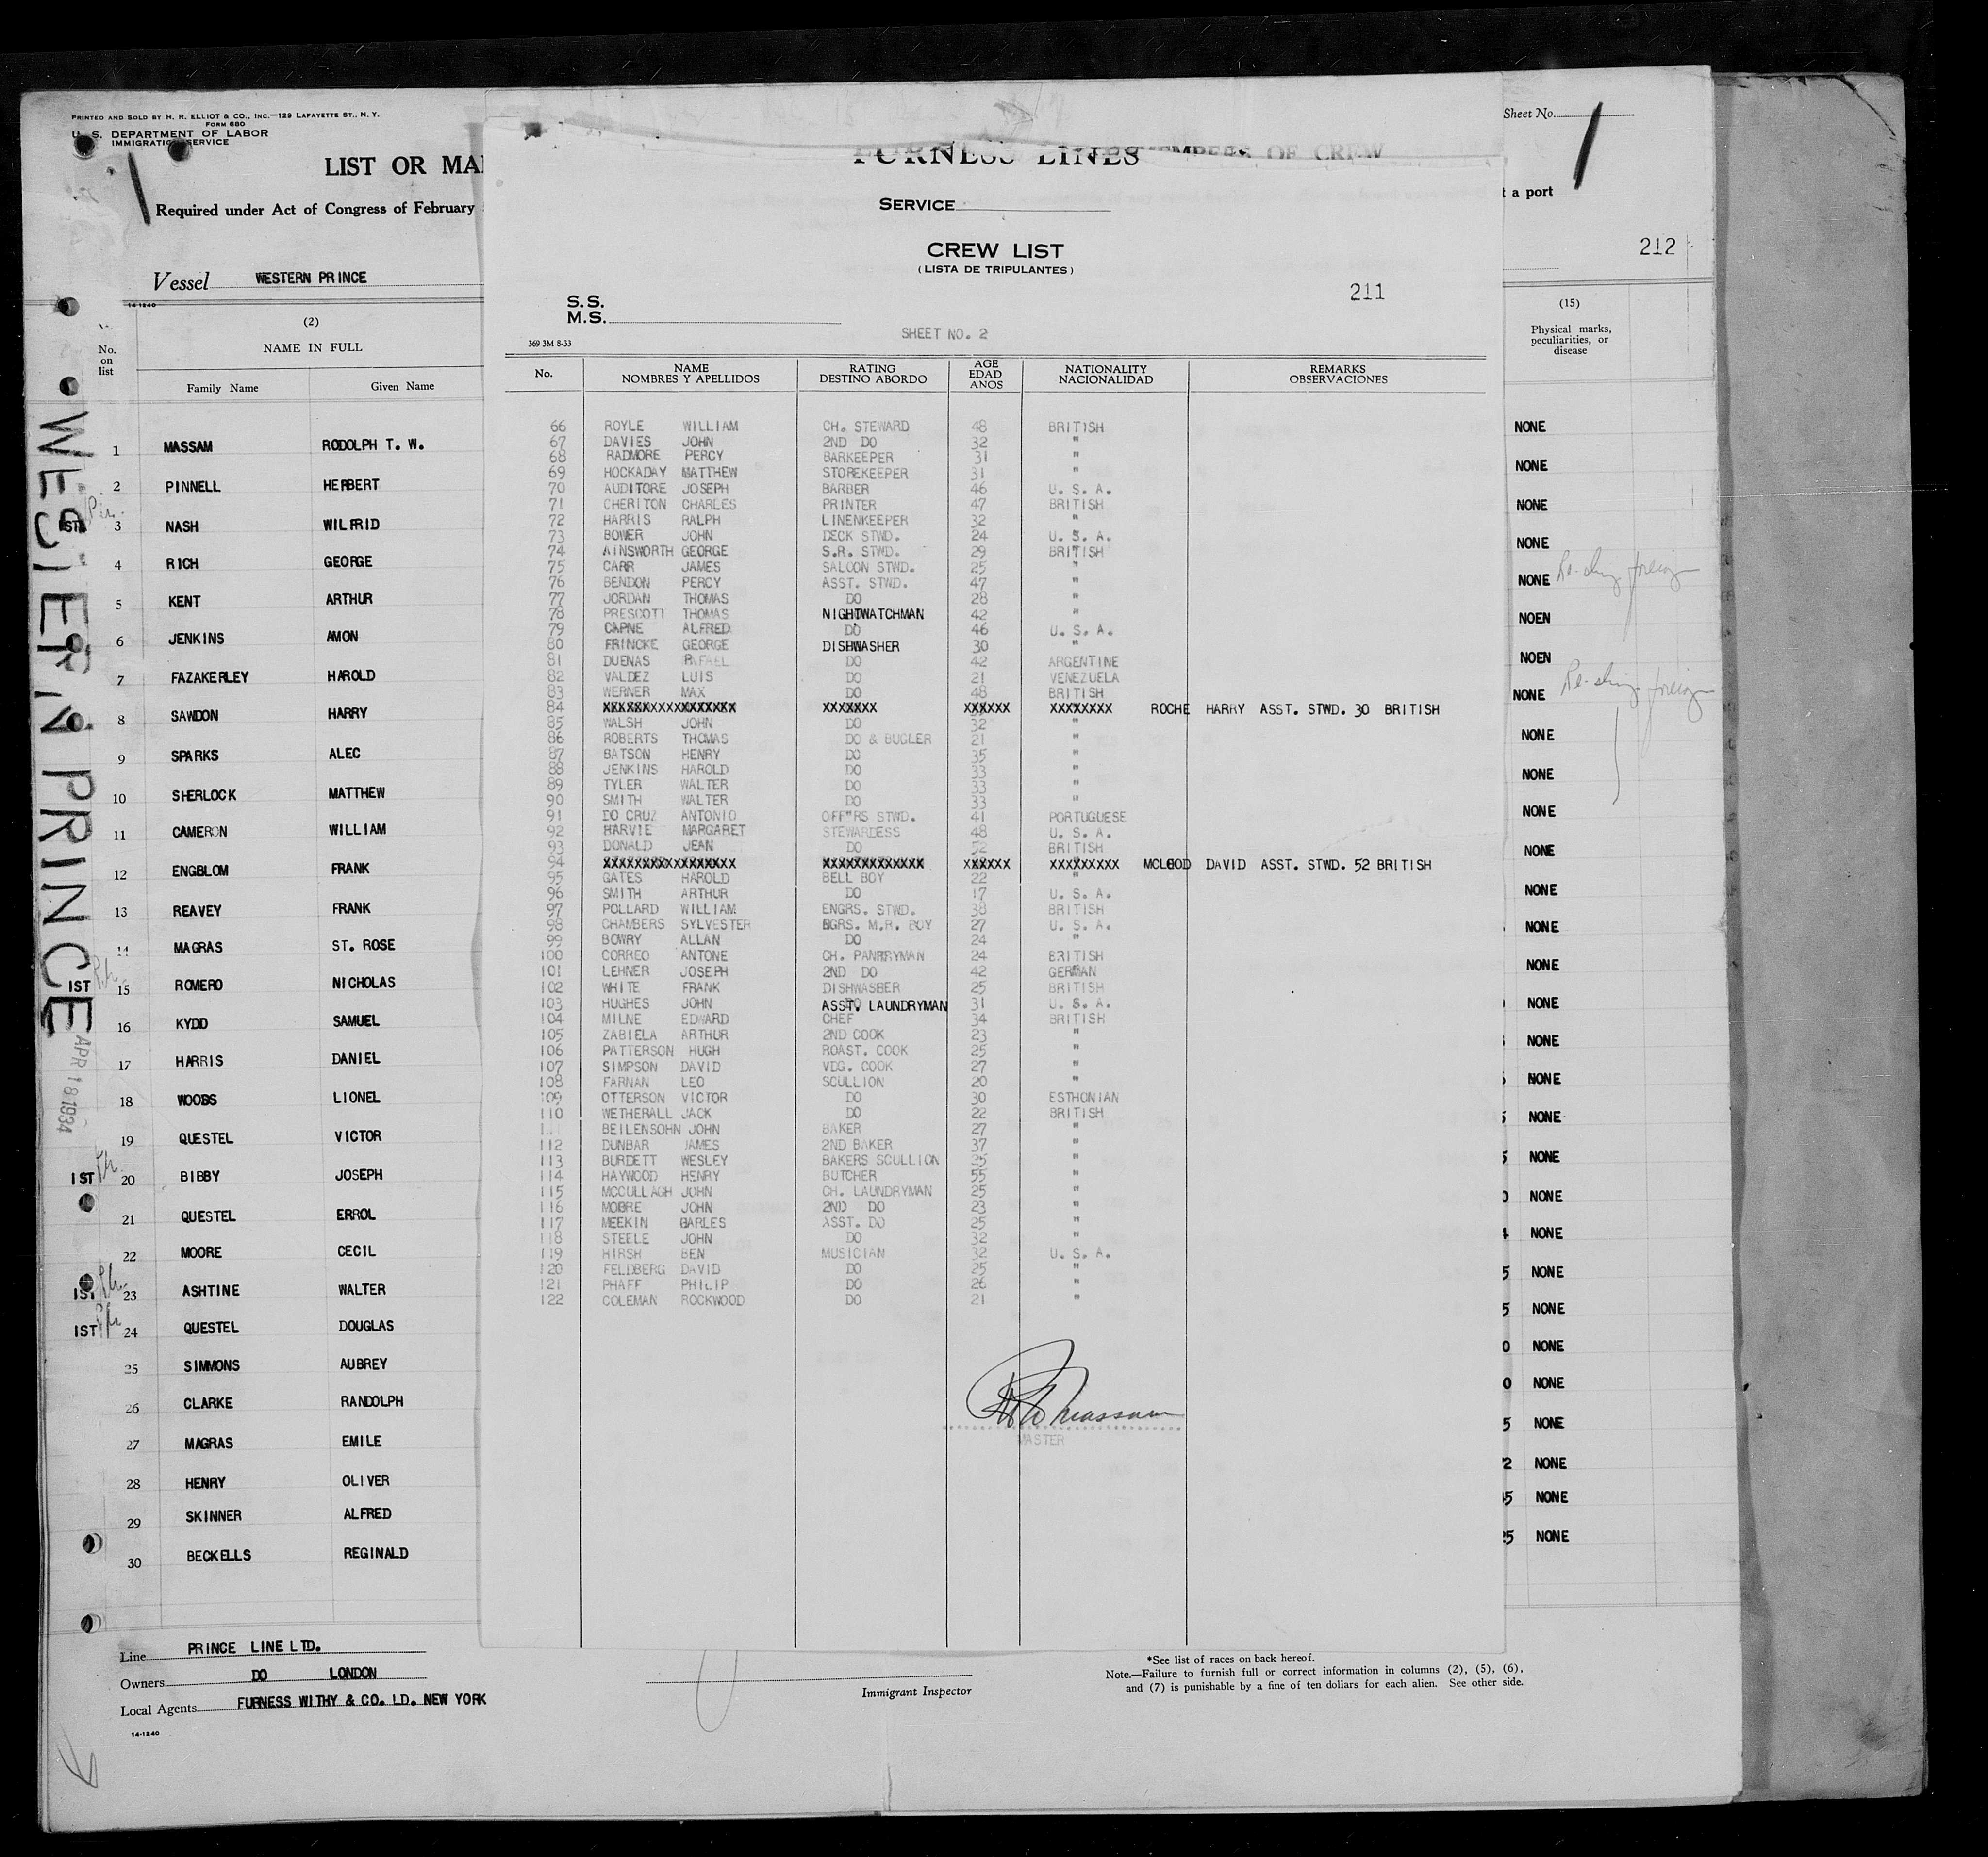 PRINTED AND SOLD BY H. R. ELLIOT & CO., INC.—129 LAFAYETTE ST., N. Y.
FORM 680
U. S. DEPARTMENT OF LABOR
IMMIGRATION SERVICE
LIST OR MA
Required under Act of Congress of February
Vessel WESTERN PRINCE
14-1240
No. on list
(2)
NAME IN FULL
Family Name Given Name
1 MASSAM RODOLPH T. W.
2 PINNELL HERBERT
IST 3 NASH WILFRID
4 RICH GEORGE
5 KENT ARTHUR
6 JENKINS AMON
7 FAZAKERLEY HAROLD
8 SAWDON HARRY
9 SPARKS ALEC
10 SHERLOCK MATTHEW
11 CAMERON WILLIAM
12 ENGBLOM FRANK
13 REAVEY FRANK
14 MAGRAS ST. ROSE
IST 15 ROMERO NICHOLAS
16 KYDD SAMUEL
17 HARRIS DANIEL
18 WOODS LIONEL
19 QUESTEL VICTOR
IST 20 BIBBY JOSEPH
21 QUESTEL ERROL
22 MOORE CECIL
IST 23 ASHTINE WALTER
IST 24 QUESTEL DOUGLAS
25 SIMMONS AUBREY
26 CLARKE RANDOLPH
27 MAGRAS EMILE
28 HENRY OLIVER
29 SKINNER ALFRED
30 BECKELLS REGINALD
WESTERN PRINCE
APR 18 1934
Line PRINCE LINE LTD.
Owners DO LONDON
Local Agents FURNESS WITHY & CO. LD. NEW YORK
14-1240
FURNESS LINES
MEMBERS OF CREW
SERVICE
CREW LIST
(LISTA DE TRIPULANTES)
211
S.S.
M.S.
SHEET NO. 2
369 3M 8-33
No. NAME RATING AGE NATIONALITY REMARKS
NOMBRES Y APELLIDOS DESTINO ABORDO EDAD ANOS NACIONALIDAD OBSERVACIONES
66 ROYLE WILLIAM CH. STEWARD 48 BRITISH
67 DAVIES JOHN 2ND DO 32 "
68 RADMORE PERCY BARKEEPER 31 "
69 HOCKADAY MATTHEW STOREKEEPER 31 "
70 AUDITORE JOSEPH BARBER 46 U. S. A.
71 CHERITON CHARLES PRINTER 47 BRITISH
72 HARRIS RALPH LINENKEEPER 32 "
73 BOWER JOHN DECK STWD. 24 U. S. A.
74 AINSWORTH GEORGE S.R. STWD. 29 BRITISH
75 CARR JAMES SALOON STWD. 25 "
76 BENDON PERCY ASST. STWD. 47 "
77 JORDAN THOMAS DO 28 "
78 PRESCOTT THOMAS NIGHTWATCHMAN 42 "
79 CAPNE ALFRED DO 46 U. S. A.
80 FRINCKE GEORGE DISHWASHER 30 "
81 DUENAS RAFAEL DO 42 ARGENTINE
82 VALDEZ LUIS DO 21 VENEZUELA
83 WERNER MAX DO 48 BRITISH
84 XXXXXXXXXXXXXXXXX XXXXXXX XXXXXX XXXXXXXX ROCHE HARRY ASST. STWD. 30 BRITISH
85 WALSH JOHN DO 32 "
86 ROBERTS THOMAS DO & BUGLER 21 "
87 BATSON HENRY DO 35 "
88 JENKINS HAROLD DO 33 "
89 TYLER WALTER DO 33 "
90 SMITH WALTER DO 33 "
91 DO CRUZ ANTONIO OFF"RS STWD. 41 PORTUGUESE
92 HARVIE MARGARET STEWARDESS 48 U. S. A.
93 DONALD JEAN DO 52 BRITISH
94 XXXXXXXXXXXXXXXXX XXXXXXXXXXXXX XXXXXX XXXXXXXXX MCLEOD DAVID ASST. STWD. 52 BRITISH
95 GATES HAROLD BELL BOY 22 "
96 SMITH ARTHUR DO 17 U. S. A.
97 POLLARD WILLIAM ENGRS. STWD. 38 BRITISH
98 CHAMBERS SYLVESTER EGRS. M.R. BOY 27 U. S. A.
99 BOWRY ALLAN DO 24 "
100 CORREO ANTONE CH. PANRRYMAN 24 BRITISH
101 LEHNER JOSEPH 2ND DO 42 GERMAN
102 WHITE FRANK DISHWASBER 25 BRITISH
103 HUGHES JOHN ASST. LAUNDRYMAN 31 U. S. A.
104 MILNE EDWARD CHEF 34 BRITISH
105 ZABIELA ARTHUR 2ND COOK 23 "
106 PATTERSON HUGH ROAST. COOK 25 "
107 SIMPSON DAVID VDG. COOK 27 "
108 FARNAN LEO SCULLION 20 "
109 OTTERSON VICTOR DO 30 ESTHONIAN
110 WETHERALL JACK DO 22 BRITISH
BEILENSOHN JOHN BAKER 27 "
112 DUNBAR JAMES 2ND BAKER 37 "
113 BURDETT WESLEY BAKERS SCULLION 25 "
114 HAYWOOD HENRY BUTCHER 55 "
115 MCCULLAGH JOHN CH. LAUNDRYMAN 25 "
116 MOORE JOHN 2ND DO 23 "
117 MEEKIN BARLES ASST. DO 25 "
118 STEELE JOHN DO 32 "
119 HIRSH BEN MUSICIAN 32 U. S. A.
120 FELDBERG DAVID DO 25 "
121 PHAFF PHILIP DO 26 "
122 COLEMAN ROCKWOOD DO 21 "
MASTER
Immigrant Inspector
*See list of races on back hereof.
Note.—Failure to furnish full or correct information in columns (2), (5), (6),
and (7) is punishable by a fine of ten dollars for each alien. See other side.
Sheet No.
t a port
212
(15)
Physical marks, peculiarities, or disease
NONE
NONE
NONE
NONE
NONE
NOEN
NOEN
NONE
NONE
NONE
NONE
NONE
NONE
NONE
NONE
NONE
NONE
NONE
5 NONE
5 NONE
0 NONE
4 NONE
5 NONE
5 NONE
0 NONE
0 NONE
5 NONE
2 NONE
5 NONE
25 NONE